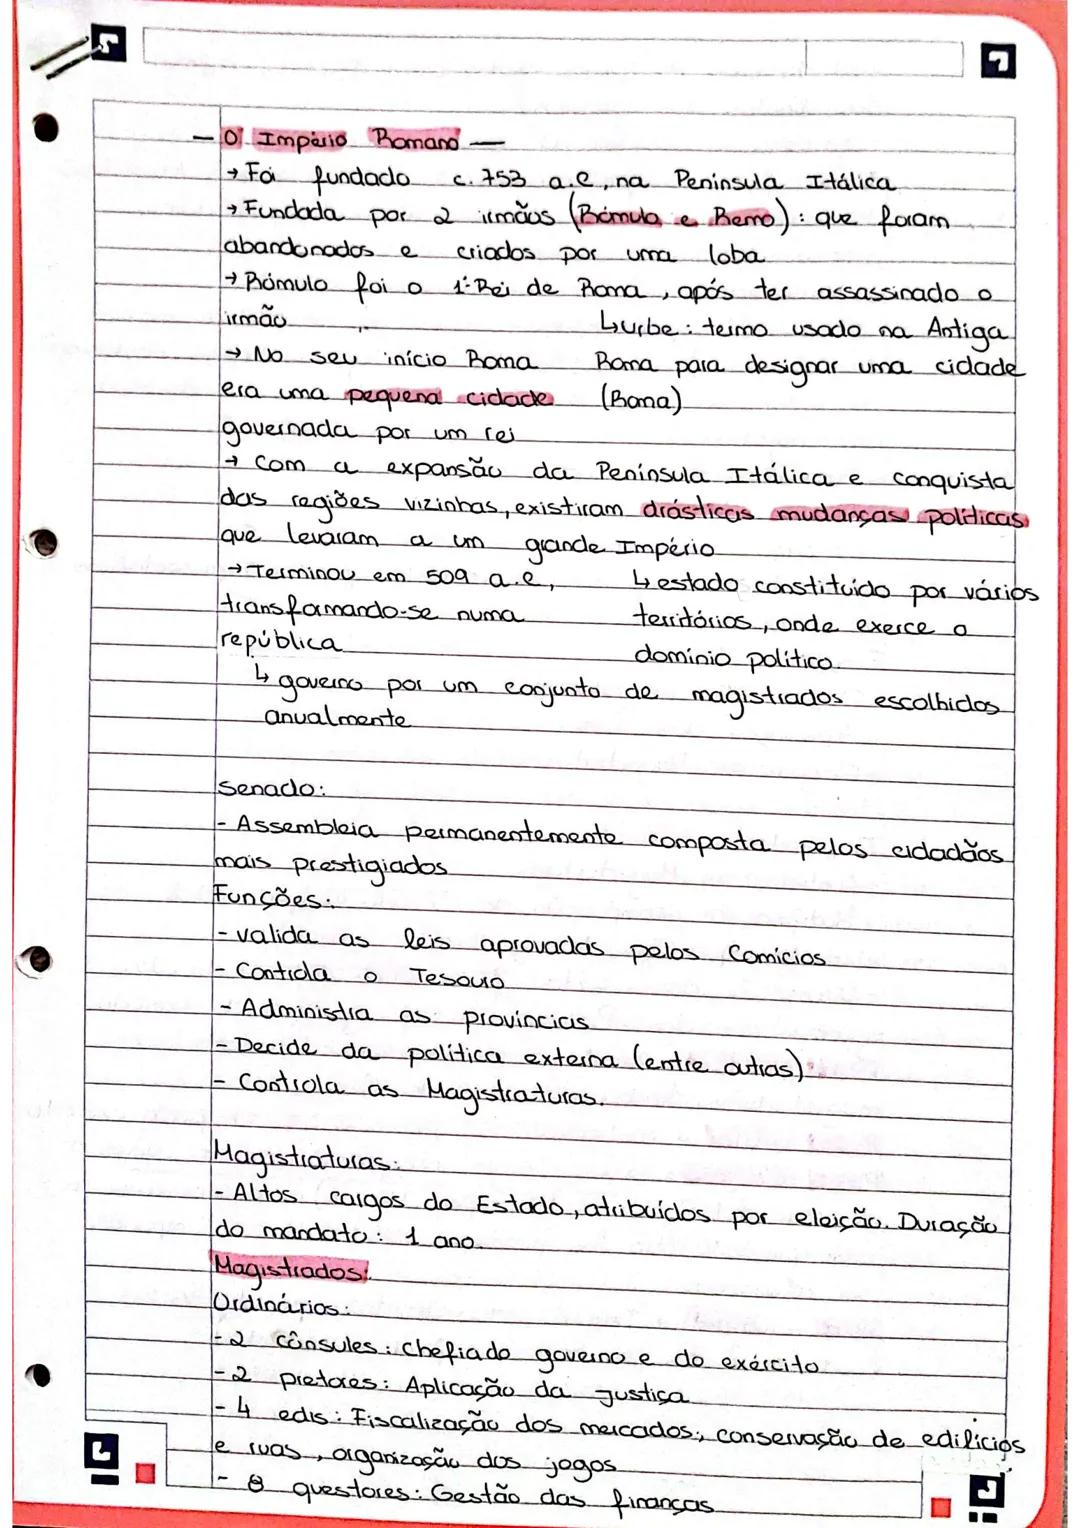 — O Império Romano —
→ Foi fundado c. 753 a.C, na Península Itálica
→ Fundada por 2 irmãos (Rómulo e Remo): que foram
abandonados e criados por uma loba
→ Rómulo foi o 1º Rei de Roma, após ter assassinado o
irmão
↳ urbe: termo usado na Antiga
Roma para designar uma cidade
(Roma)
→ No seu início Roma
era uma pequena cidade
governada por um rei
→ Com a expansão da Península Itálica e conquista
das regiões vizinhas, existiram drásticas mudanças políticas
que levaram a um grande Império
↳ estado constituído por vários
territórios, onde exerce o
domínio político.
→ Terminou em 509 a.C,
transformando-se numa
república
↳ governo por um conjunto de magistrados escolhidos
anualmente
Senado:
- Assembleia permanentemente composta pelos cidadãos
mais prestigiados
Funções:
- valida as leis aprovadas pelos Comícios
- Controla o Tesouro
- Administra as províncias
- Decide da política externa (entre outras)
- Controla as Magistraturas.
Magistraturas:
- Altos cargos do Estado, atribuídos por eleição. Duração
do mandato: 1 ano.
Magistrados:
Ordinários:
- 2 cônsules: Chefia do governo e do exército
- 2 pretores: Aplicação da Justiça
- 4 edis: Fiscalização dos mercados; conservação de edifícios
e ruas, organização dos jogos
- 8 questores: Gestão das finanças